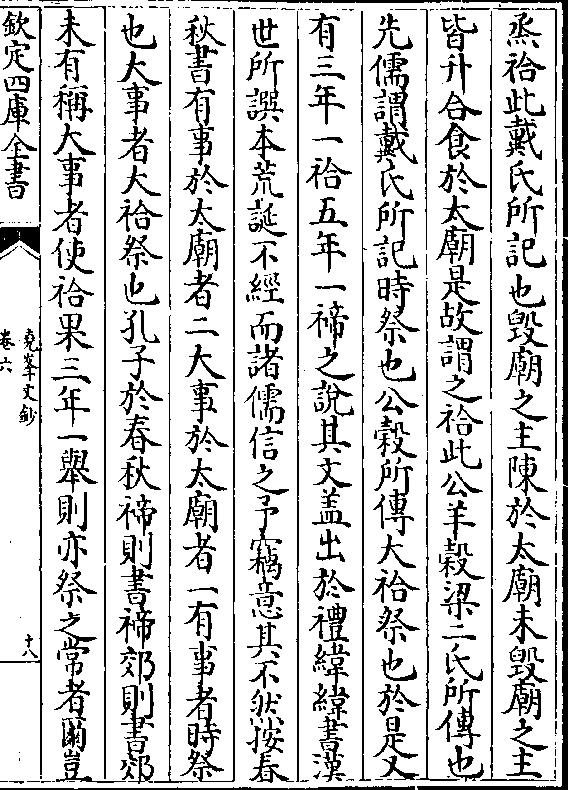 烝祫此戴氏所記也毀廟之主陳於太廟未毀廟之主
皆升合食於太廟是故謂之祫此公羊榖梁二氏所傳也
先儒謂戴氏所記時祭也公榖所傳大祫祭也於是又
有三年一祫五年一禘之說其文盖出於禮緯緯書漢
世所譔本荒誕不經而諸儒信之予竊意其不然按春
秋書有事於太廟者二大事於太廟者一有事者時祭
也大事者大祫祭也孔子於春秋禘則書禘郊則書郊
未有稱大事者使祫果三年一舉則亦祭之常者爾豈
欽定四庫全書
堯峯文鈔
卷六
十八